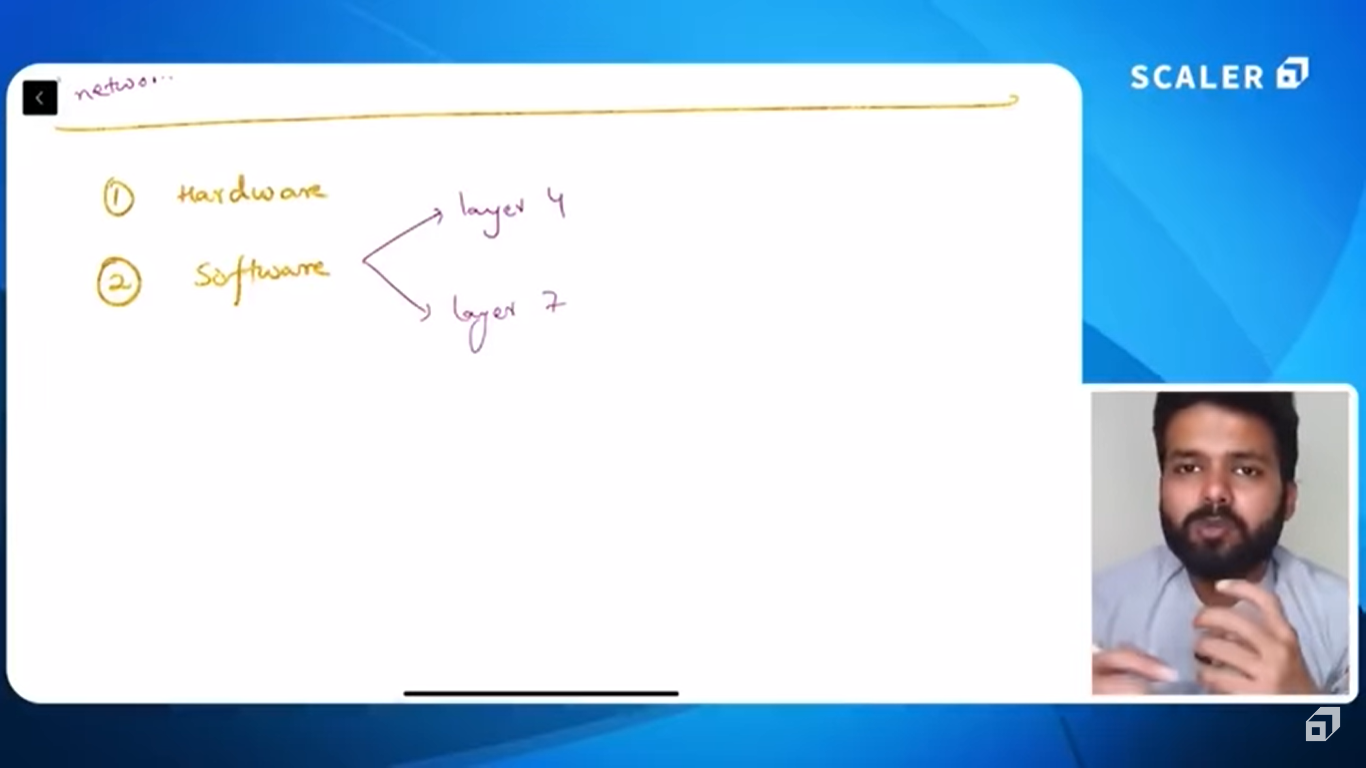 SCALER
networ..
① Hardware
② Software
layer 4
layer 7